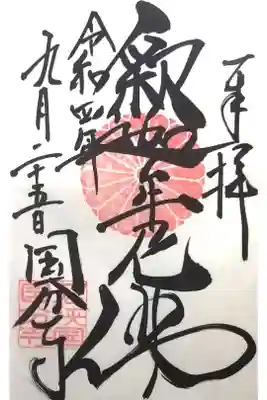 奉拝
釈迦牟尼佛
令和四年
九月二十五日
国分寺